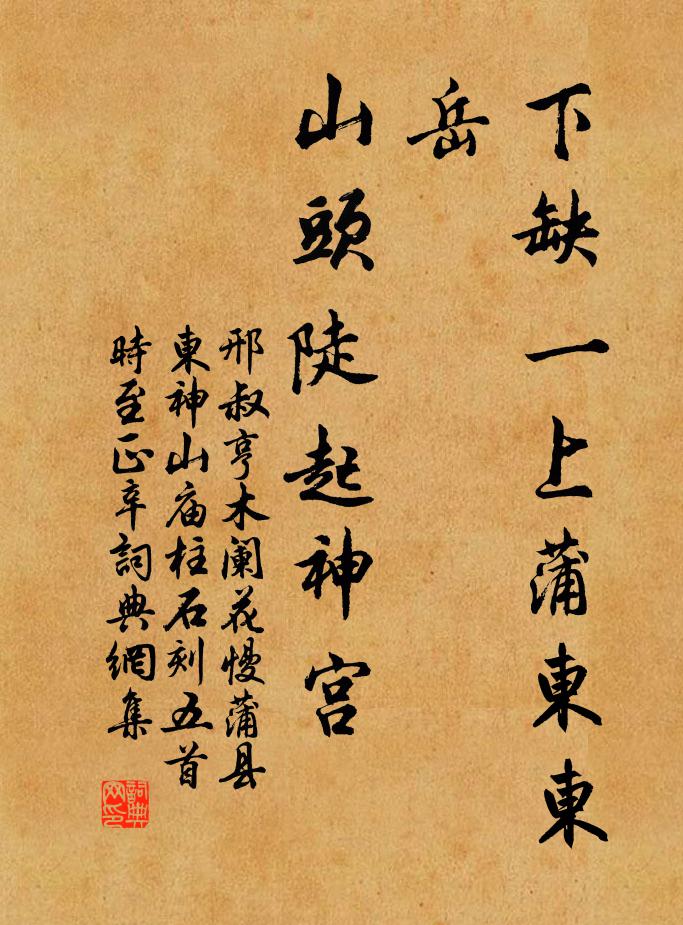 下缺一上蒲東東
岳
山頭陡起神宫
邢叔亨木闌花慢蒲县
東神山庙柱石刻五首
時至正辛詞典網集
詞典网印